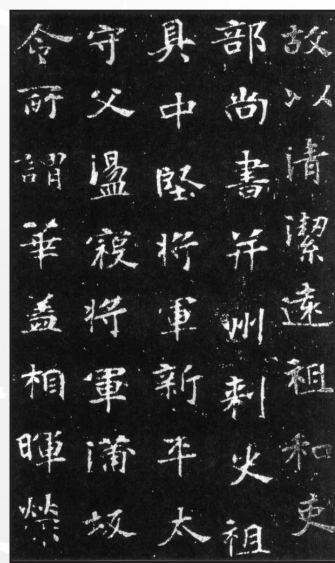 故以清潔遠祖和吏
部尚書并州刺史祖
具中堅將軍新平太
守父溫寇將軍蒲坂
令所謂華蓋相暉榮